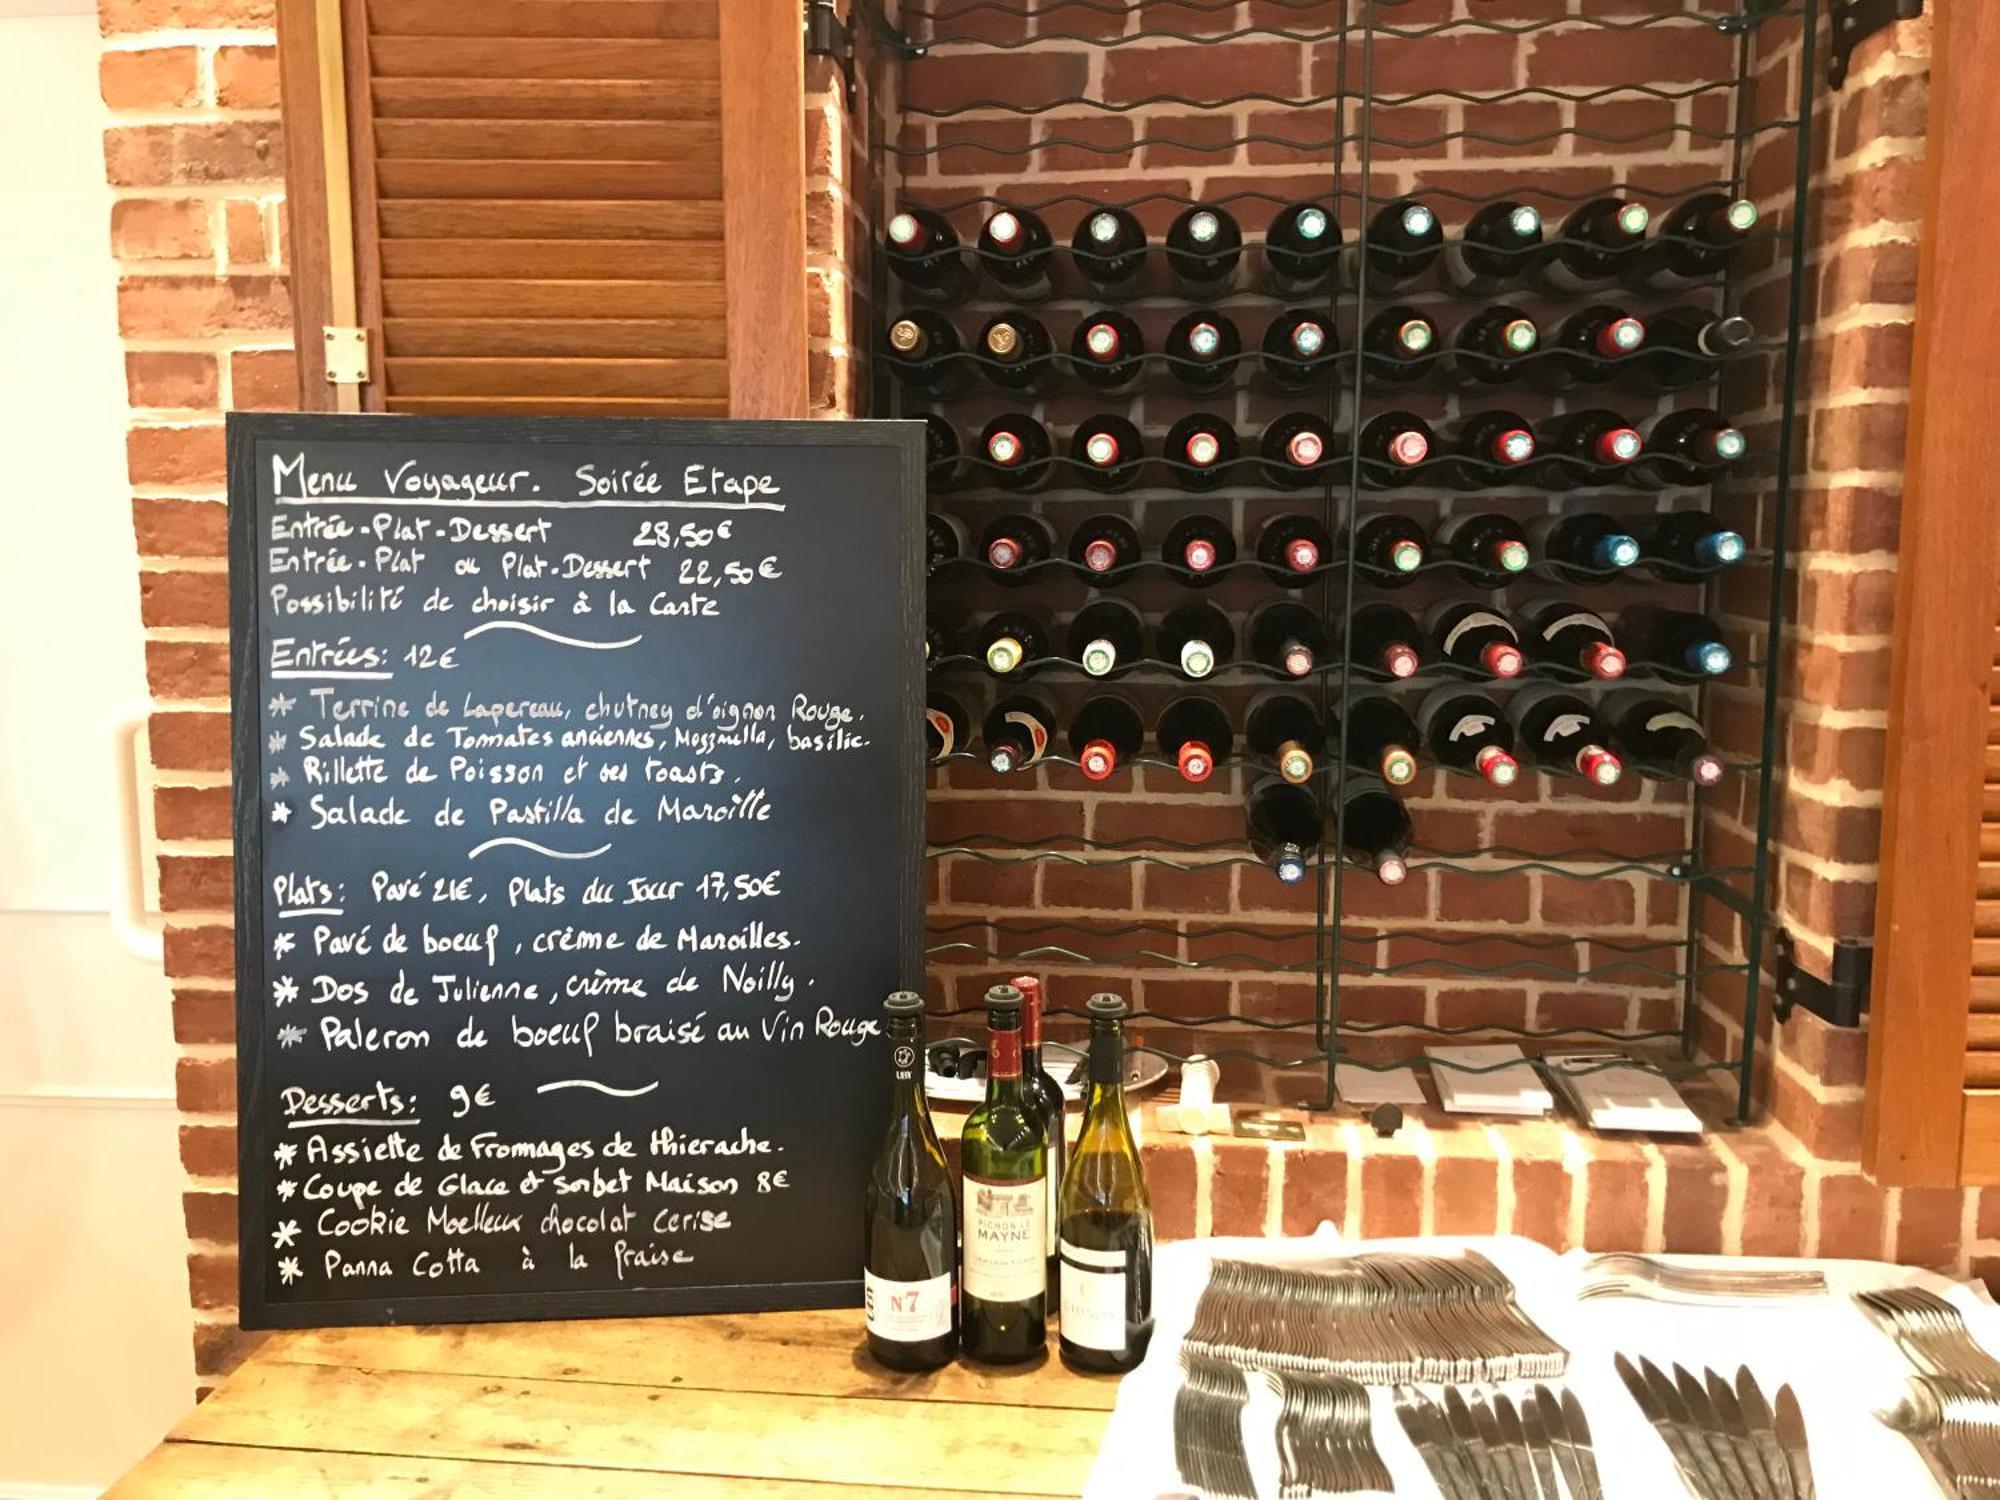 Menu Voyageur. Soirée Etape
Entrée-Plat-Dessert 28,50€
Entrée-Plat ou Plat-Dessert 22,50€
Possibilité de choisir à la Carte
Entrées: 12€
* Terrine de Lapereau, chutney d'oignon Rouge.
* Salade de Tomates anciennes, Mozzarella, basilic.
* Rillette de Poisson et ses toasts.
* Salade de Pastilla de Maroille
Plats: Pavé 21€, Plats du Jour 17,50€
* Pavé de boeuf, crème de Maroilles.
* Dos de Julienne, crème de Noilly.
* Paleron de boeuf braisé au Vin Rouge
Desserts: 9€
* Assiette de Fromages de thierache.
* Coupe de Glace et Sorbet Maison 8€
* Cookie Moelleux chocolat Cerise
* Panna Cotta à la fraise
UBY
N°7
PICHON LE
MAYNE
CHINON